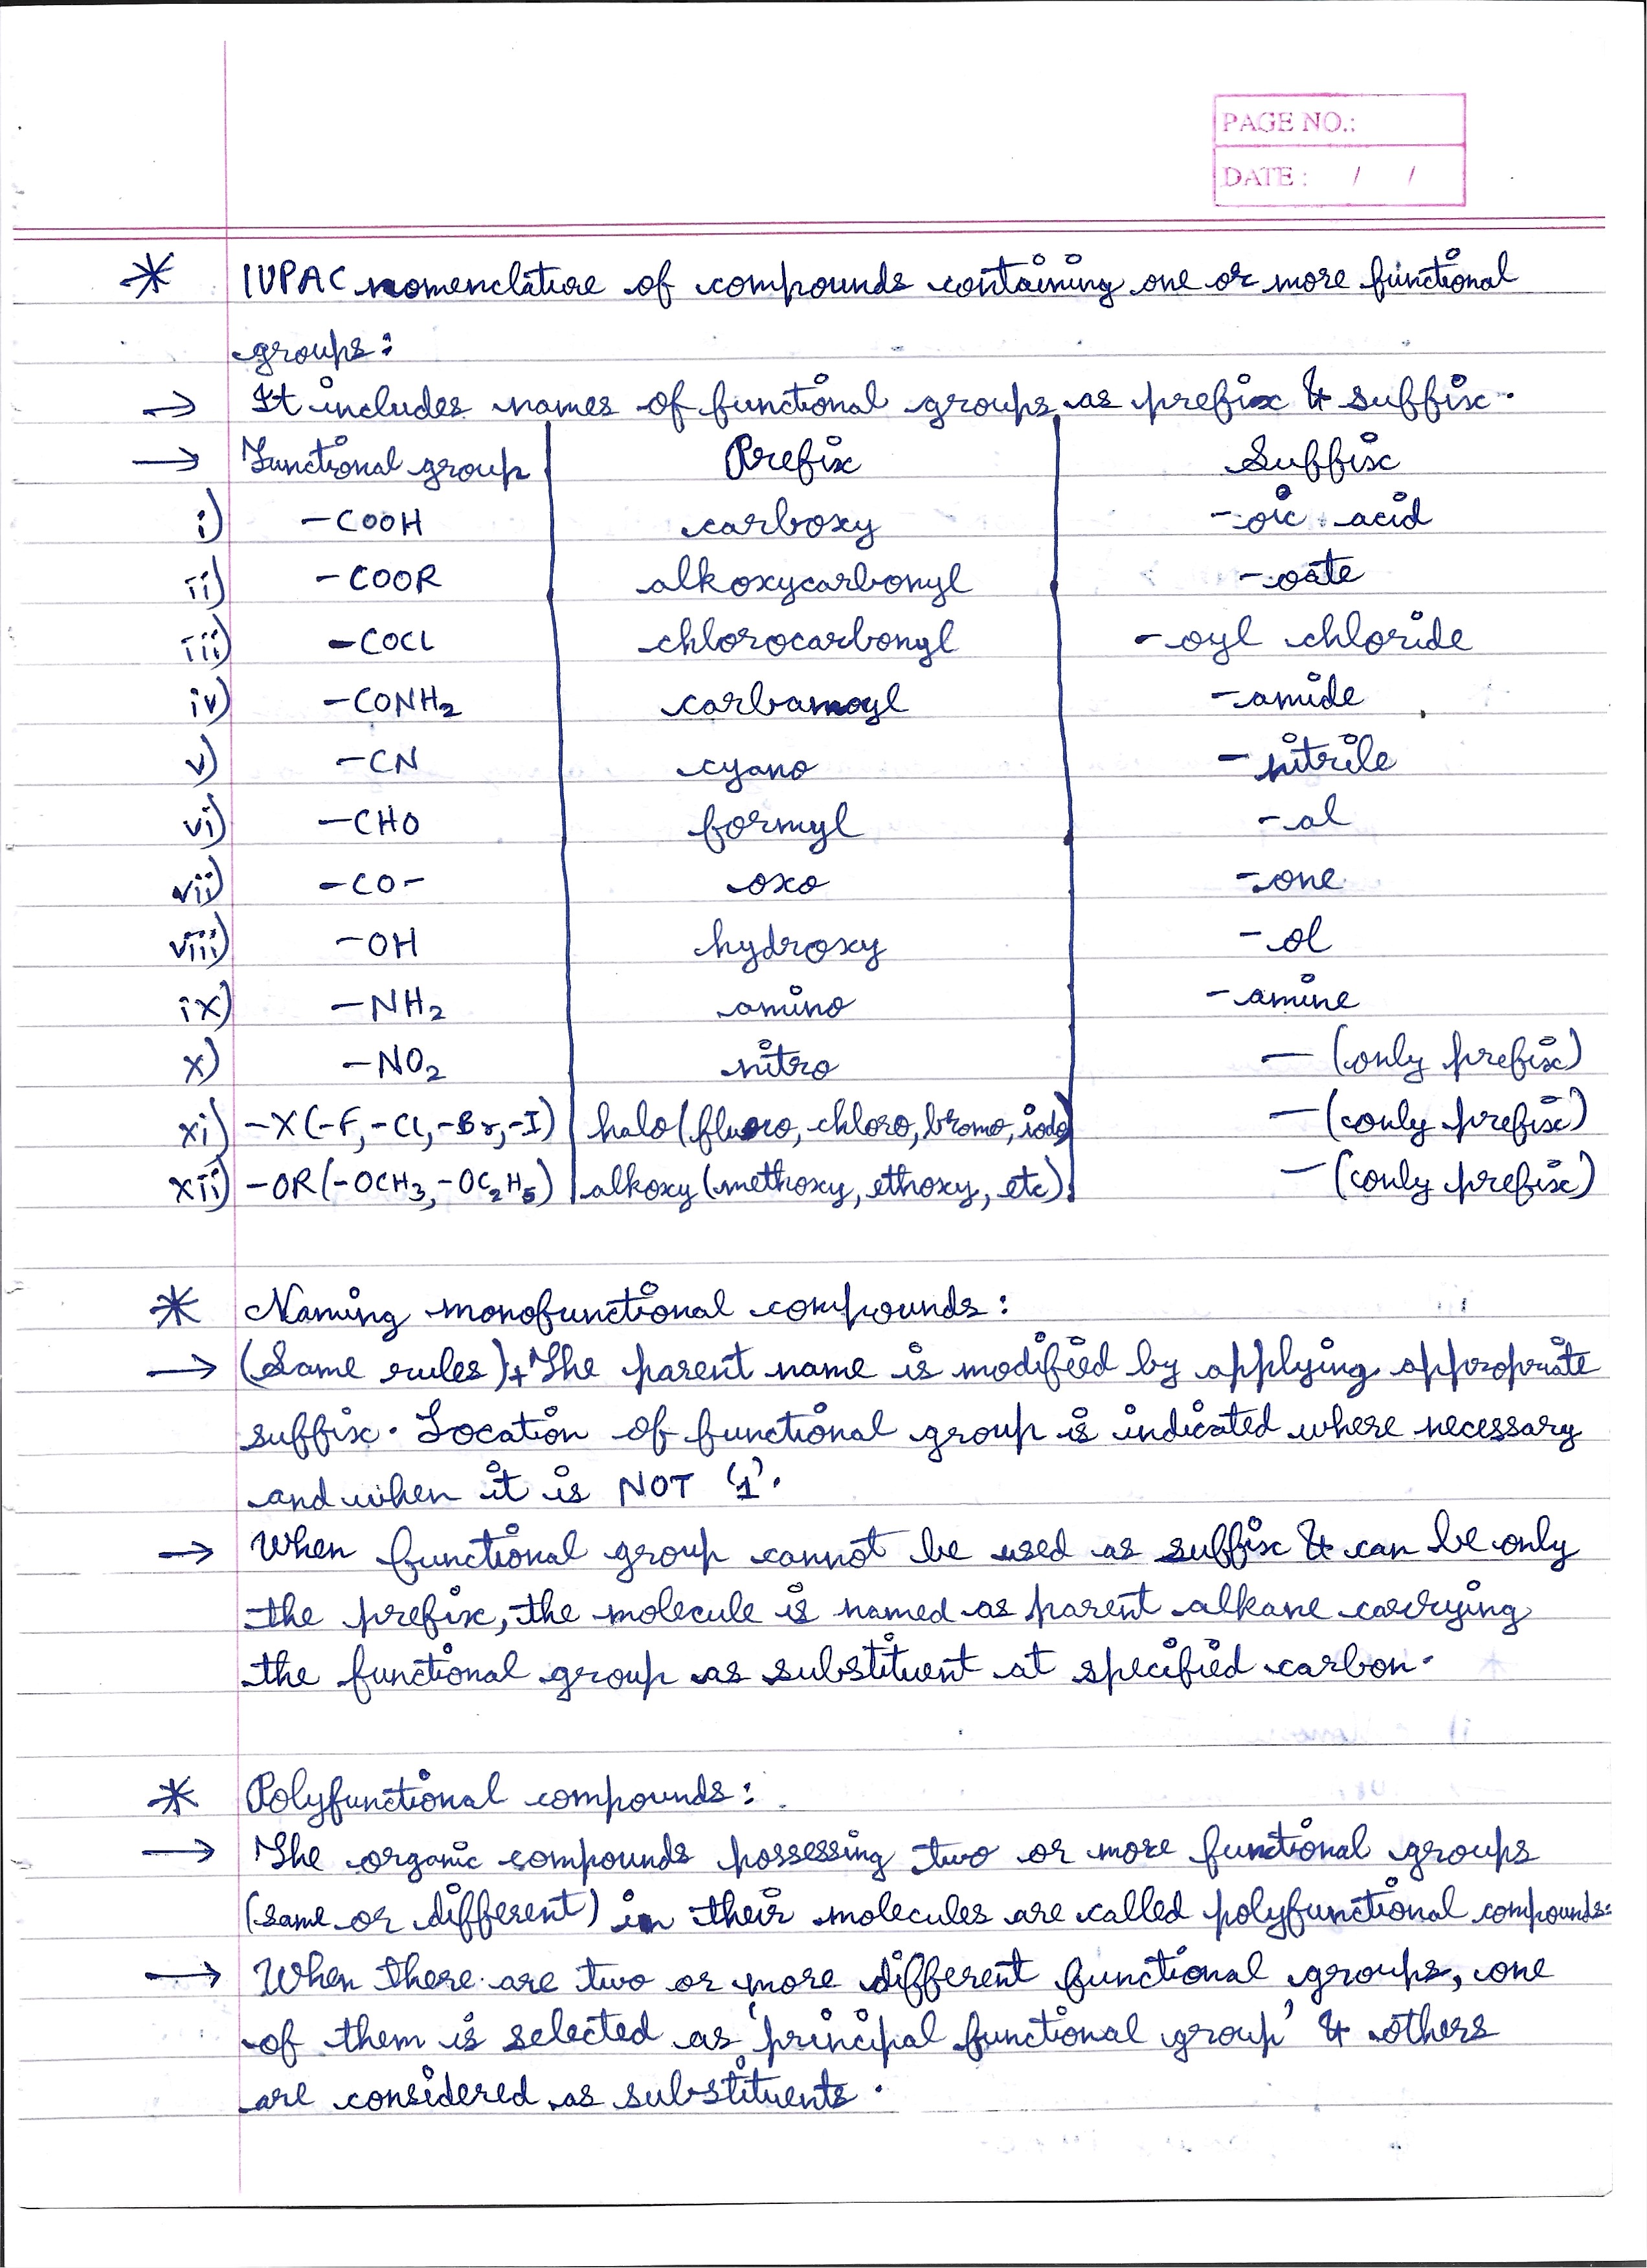 PAGE NO.:
DATE : / /
* IUPAC nomenclature of compounds containing one or more functional
groups:
→ It includes names of functional groups as prefix & suffix.
→ Functional group Prefix Suffix
i) -COOH carboxy -oic acid
ii) -COOR alkoxycarbonyl -oate
iii) -COCl chlorocarbonyl -oyl chloride
iv) -CONH₂ carbamoyl -amide
v) -CN cyano -nitrile
vi) -CHO formyl -al
vii) -CO- oxo -one
viii) -OH hydroxy -ol
ix) -NH₂ amino -amine
x) -NO₂ nitro — (only prefix)
xi) -X (-F, -Cl, -Br, -I) halo (fluoro, chloro, bromo, iodo) — (only prefix)
xii) -OR (-OCH₃, -OC₂H₅) alkoxy (methoxy, ethoxy, etc). — (only prefix)
* Naming monofunctional compounds:
→ (Same rules) + The parent name is modified by applying appropriate
suffix. Location of functional group is indicated where necessary
and when it is NOT '1'.
→ When functional group cannot be used as suffix & can be only
the prefix, the molecule is named as parent alkane carrying
the functional group as substituent at specified carbon.
* Polyfunctional compounds:
→ The organic compounds possessing two or more functional groups
(same or different) in their molecules are called polyfunctional compounds.
→ When there are two or more different functional groups, one
of them is selected as 'principal functional group' & others
are considered as substituents.